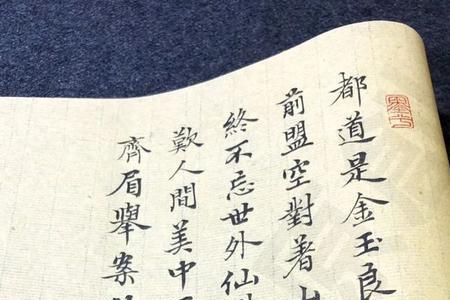 都道是金玉良
前盟空對著
終不忘世外仙
歎人間美中
齊眉舉案